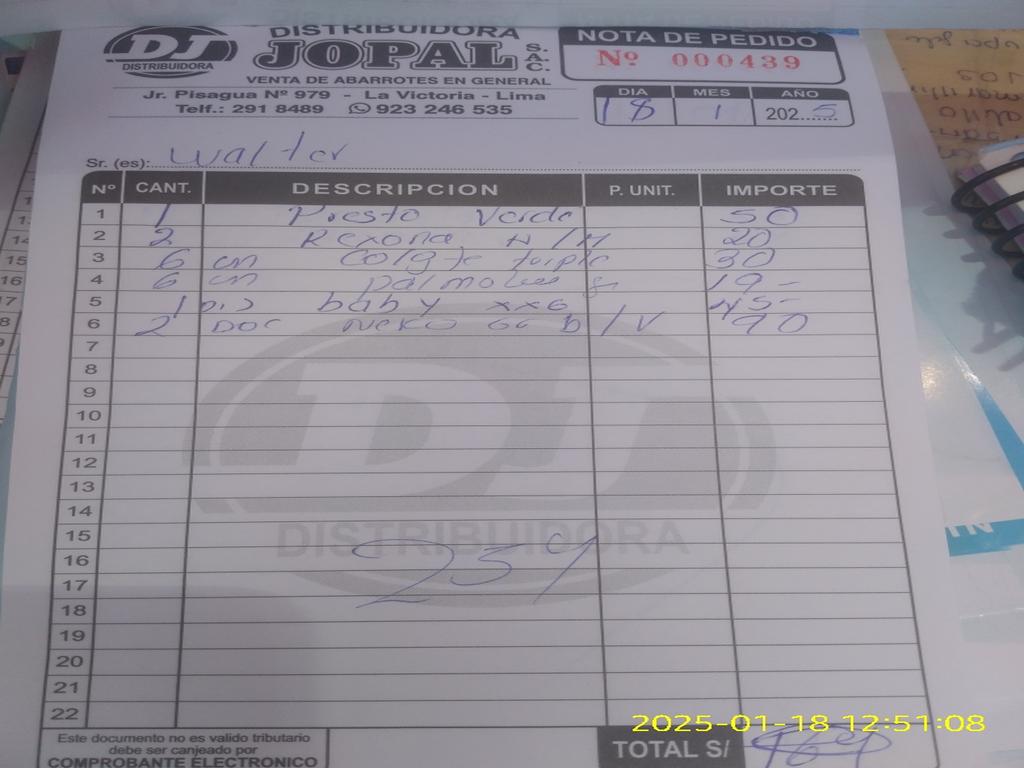 DJ DISTRIBUIDORA
DISTRIBUIDORA
JOPAL S.A.C.
VENTA DE ABARROTES EN GENERAL
Jr. Pisagua Nº 979 - La Victoria - Lima
Telf.: 291 8489 923 246 535
NOTA DE PEDIDO
Nº 000439
DIA MES AÑO
18 1 2025
Sr. (es): Walter
Nº CANT. DESCRIPCION P. UNIT. IMPORTE
1 1 Presto Verde 50
2 2 Rexona N/M 20
3 6 cn Colgte triple 30
4 6 cn palmolive 19-
5 1 baby xxG 45-
6 2 DOC Neko D/V 90
7
8
9
10
11
12
13
14
15
16
17
18
19
20
21
22
DJ
DISTRIBUIDORA
254
Este documento no es valido tributario
debe ser canjeado por
COMPROBANTE ELECTRONICO
TOTAL S/
2025-01-18 12:51:08